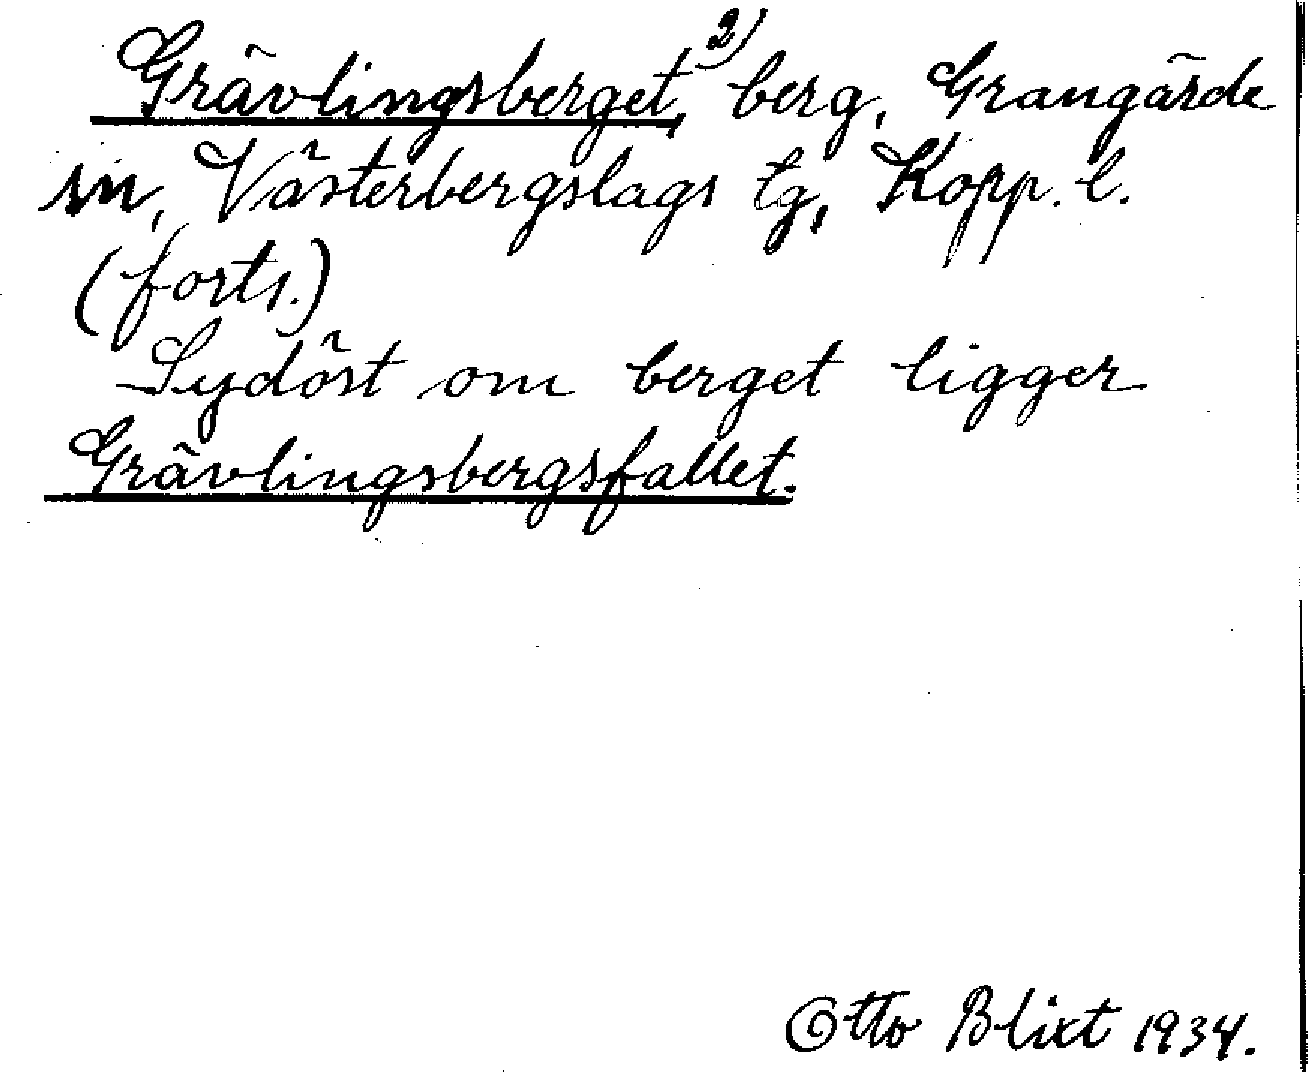 Grävlingsberget,²⁾ berg, Grangärde
sn, Västerbergslags tg, Kopp. l.
(forts.)
Sydöst om berget ligger
Grävlingsbergsfallet.
Otto Blixt 1934.